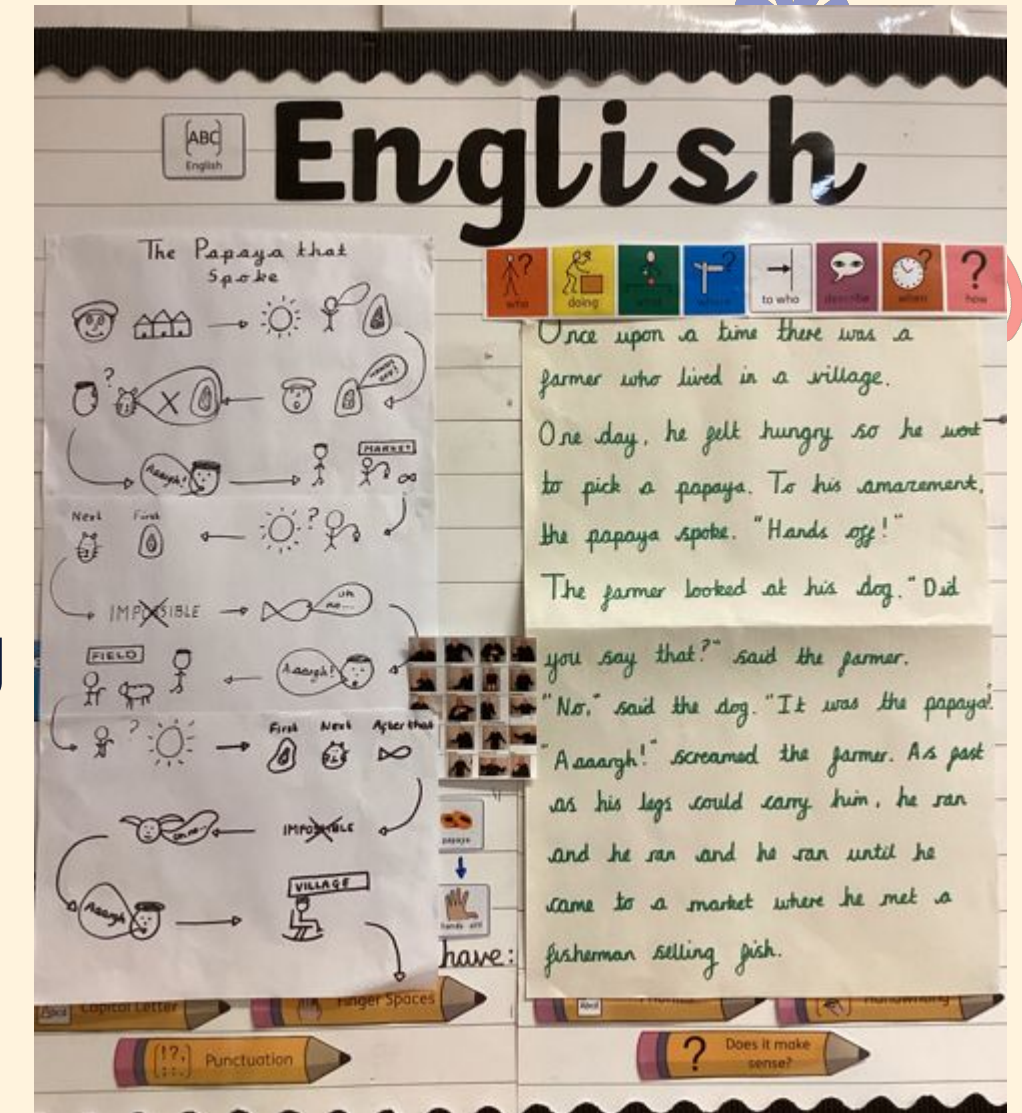 English
[ABC]
English
The Papaya that
Spoke
HANDS OFF!
?
X
Aaargh!
MARKET
Next First
?
IMPOSSIBLE
uh no...
FIELD
Aaargh!
?
First Next After that
IMPOSSIBLE
uh no...
VILLAGE
Aaargh
who doing what where to who describe when how
Once upon a time there was a
farmer who lived in a village.
One day, he felt hungry so he went
to pick a papaya. To his amazement,
the papaya spoke. "Hands off!"
The farmer looked at his dog. "Did
you say that?" said the farmer.
"No," said the dog. "It was the papaya!"
"Aaaargh!" screamed the farmer. As fast
as his legs could carry him, he ran
and he ran and he ran until he
came to a market where he met a
fisherman selling fish.
papaya
hands off!
have:
Capital Letter
Finger Spaces
Phonics
Handwriting
Punctuation
Does it make
sense?